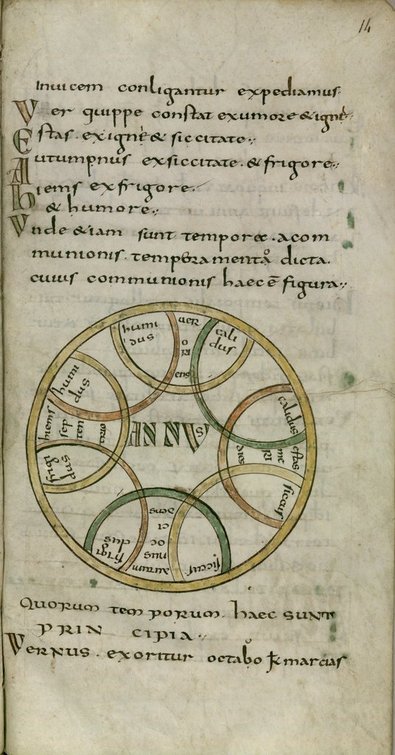 14
Inuicem conligantur expediamus.
Ver quippe constat exumore & igne.
Estas . exigne & siccitate.
Autumpnus exsiccitate . & frigore.
Hiems exfrigore.
& humore.
Vnde & iam sunt temporæ . acom
munionis . temperamenta dicta.
cuius communionis haec ē figura.
humi
dus
uer
o
ri
ens
cali
dus
calidus
estas
me
ri
dies
siccus
siccus
autum
nus
oc
ci
dens
frigi
dus
frigi
dus
hiems
sep
ten
trio
humi
dus
ANNVS
Quorum temporum . haec sunt
PRIN CIPIA.
Vernus . exoritur octabo kł marcias